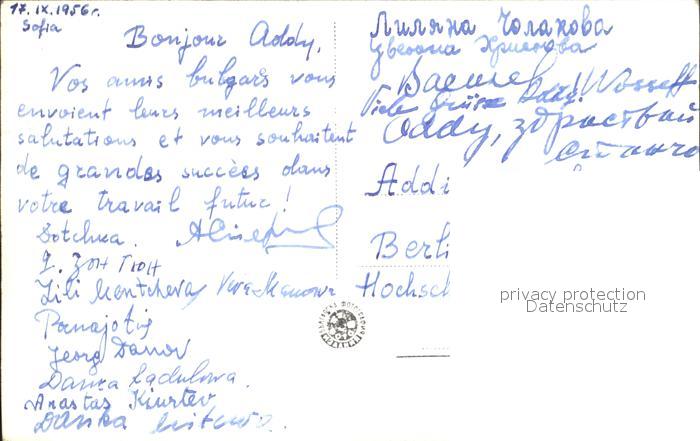 17.IX.1956 г.
Sofia
Bonjour Addy,
Vos amis bulgars vous
envoient leurs meilleurs
salutations et vous souhaitent
de grandes succèes dans
votre travail futur!
Dotchka.
Lili Mentcheva Vera
Panajotis
Georg Danov
Danka
Anastas Kiurtev
Danka
Лиляна Чолакова
Христова
Wasseff
Viele Grüsse Addi!
Addy, здраствай
Addi
Berli
Hochsch
privacy protection
Datenschutz